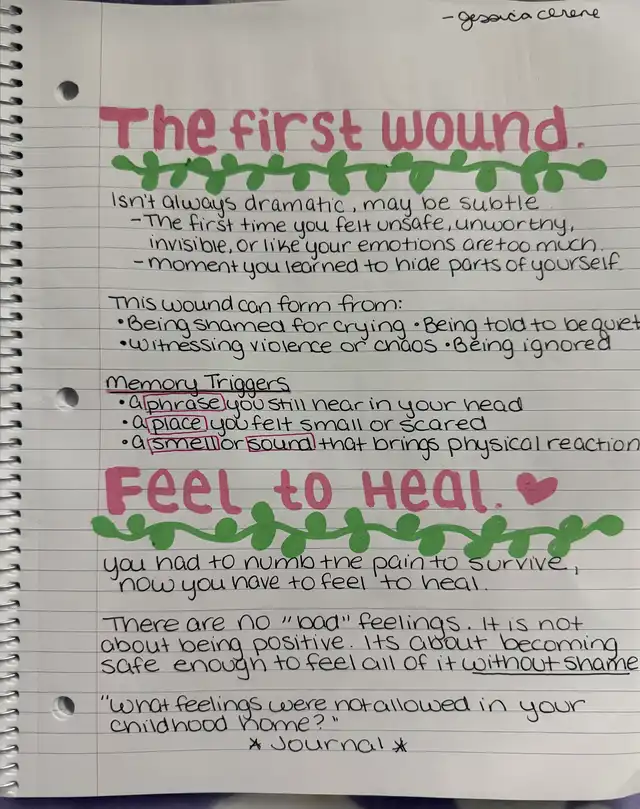 - Jessica Cerene
The first wound.
Isn't always dramatic, may be subtle
- The first time you felt unsafe, unworthy,
invisible, or like your emotions are too much.
- moment you learned to hide parts of yourself.
This wound can form from:
• Being shamed for crying • Being told to be quiet
• Witnessing violence or chaos • Being ignored
Memory Triggers
• a phrase you still hear in your head
• a place you felt small or scared
• a smell or sound that brings physical reaction
Feel to Heal. ♥
you had to numb the pain to survive,
now you have to feel to heal.
There are no "bad" feelings. It is not
about being positive. Its about becoming
safe enough to feel all of it without shame
"What feelings were not allowed in your
childhood home?"
* Journal *